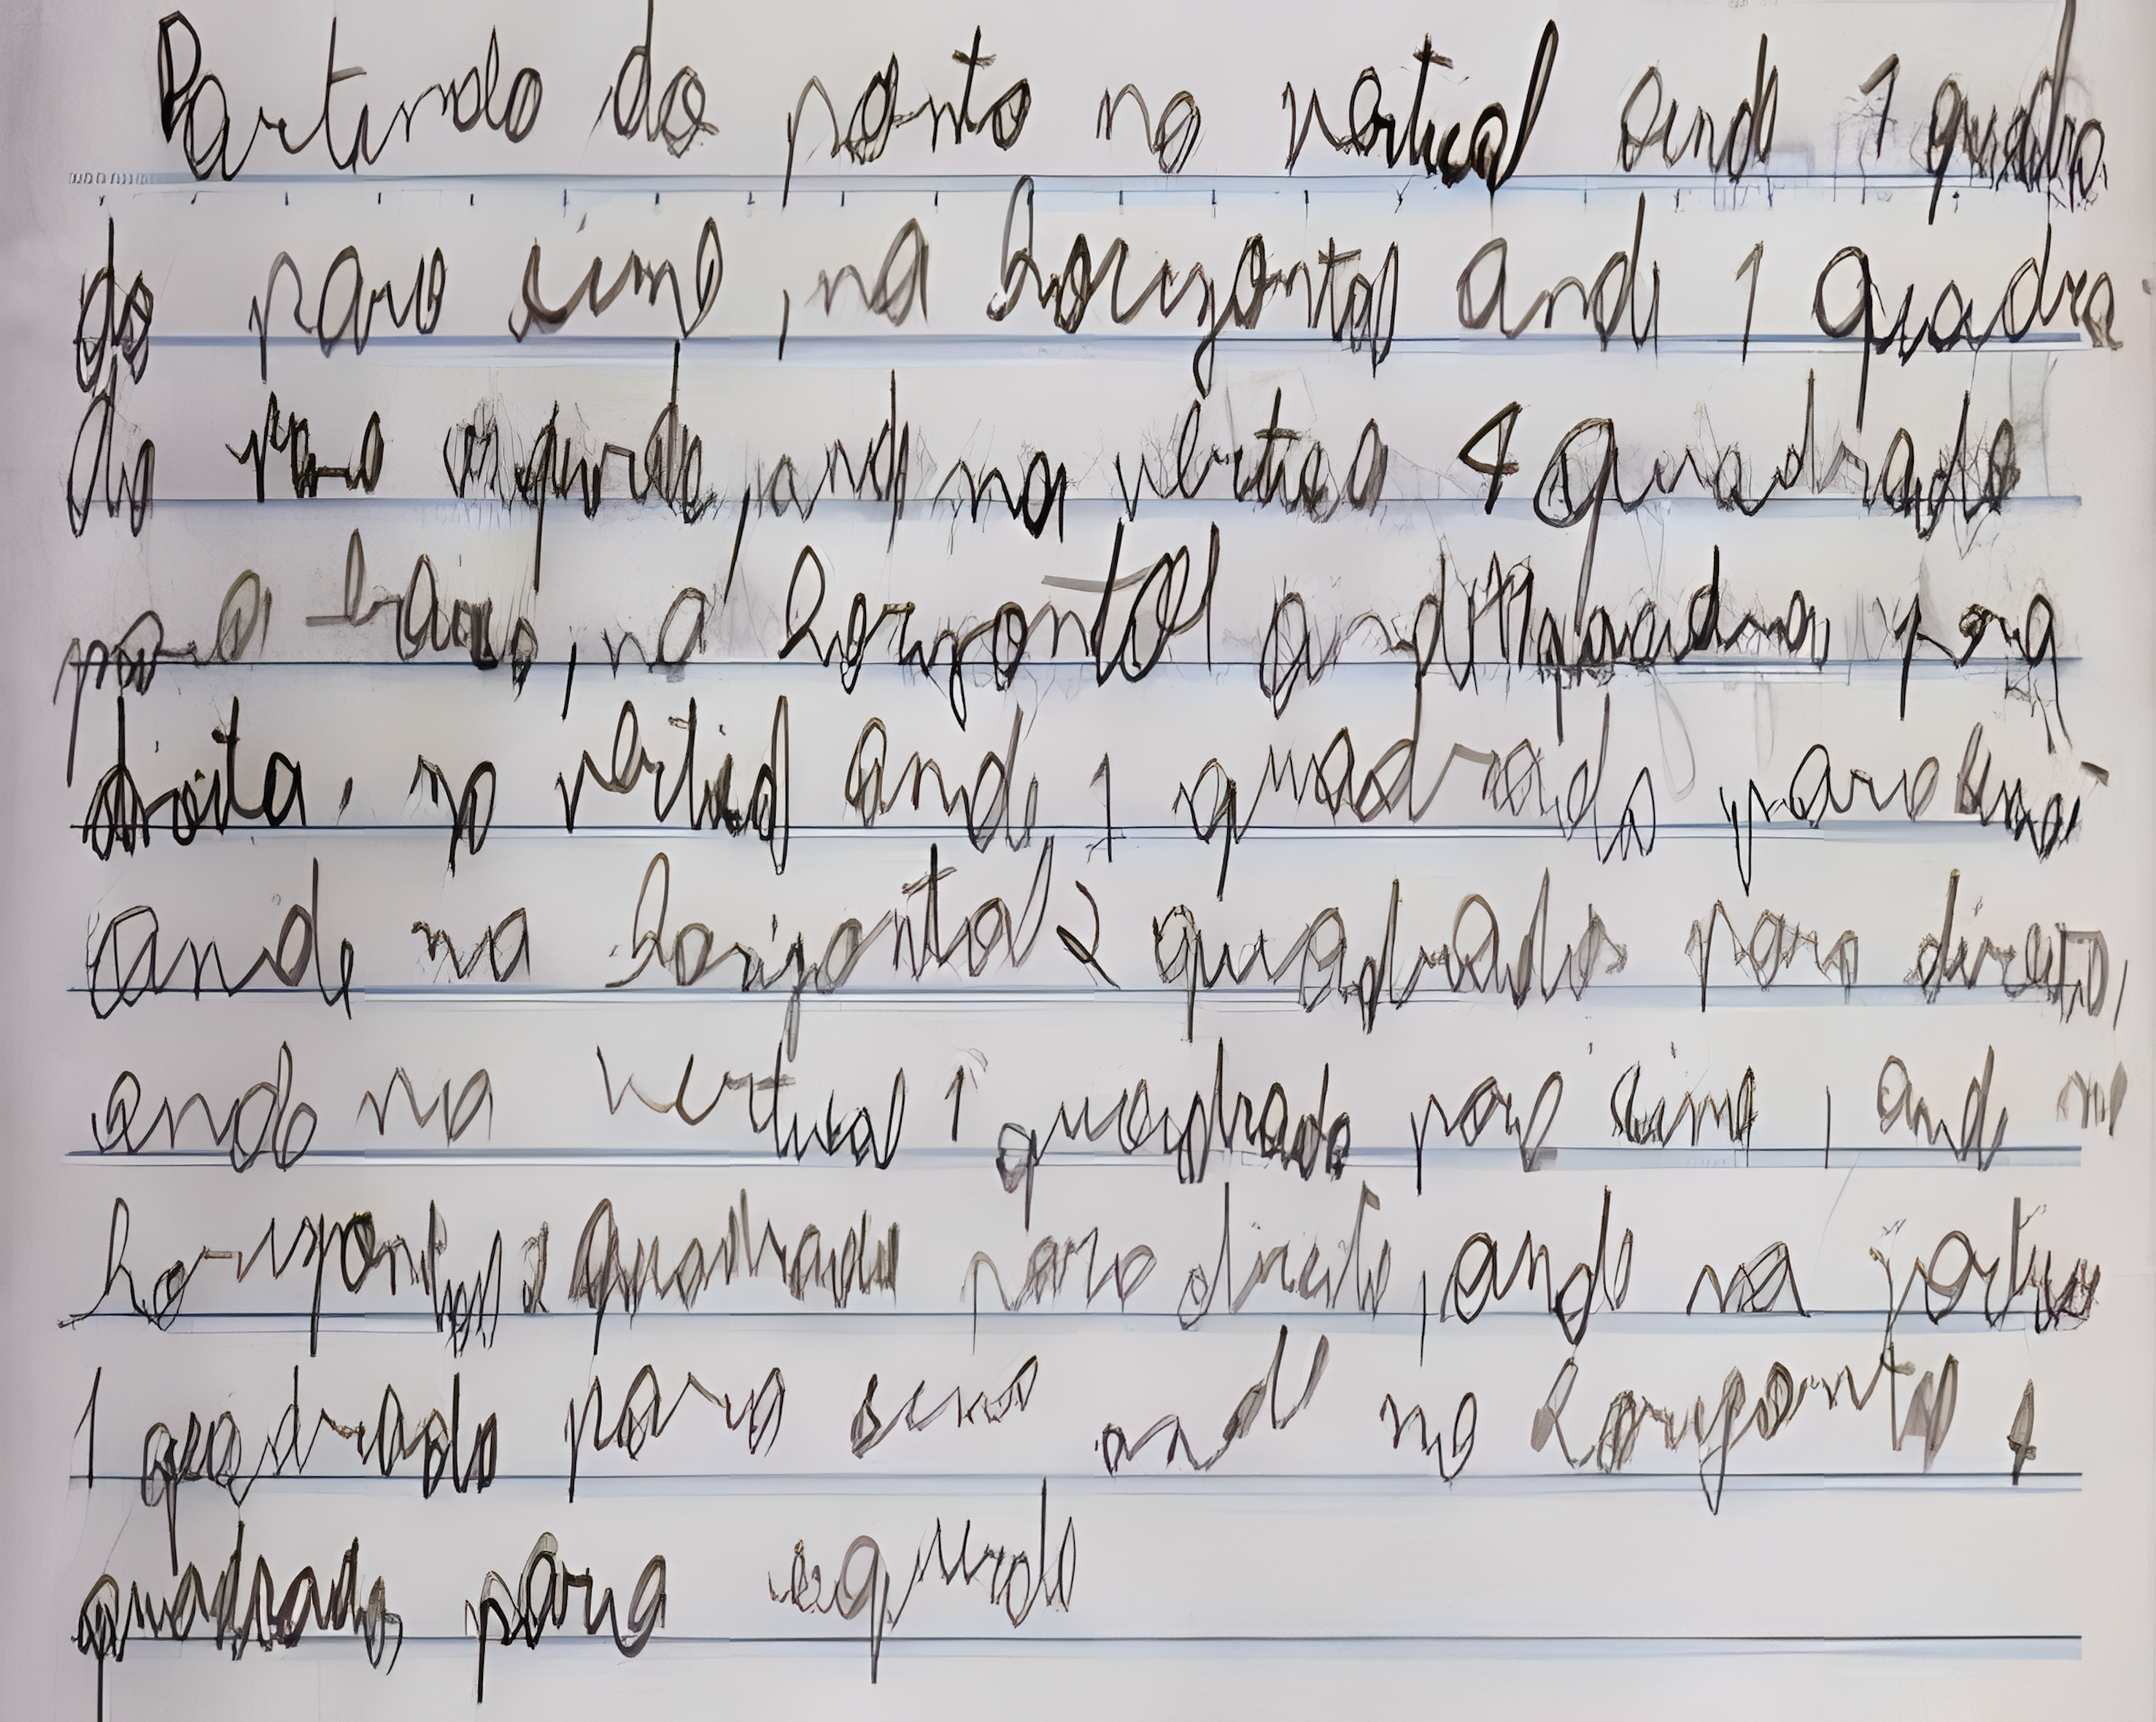 Partindo do ponto na vertical ande 1 quadra
do para cima, na horizontal ande 1 quadra
do para esquerda, ande na vertical 4 quadrado
para baixo, na horizontal ande quadrado para
direita, na vertical ande 1 quadrado para
ande na horizontal 2 quadrados para direita,
ande na vertical 1 quadrado para cima, ande na
horizontal 2 quadrado para direita, ande na
1 quadrado para cima ande na horizontal
quadrado para esquerda